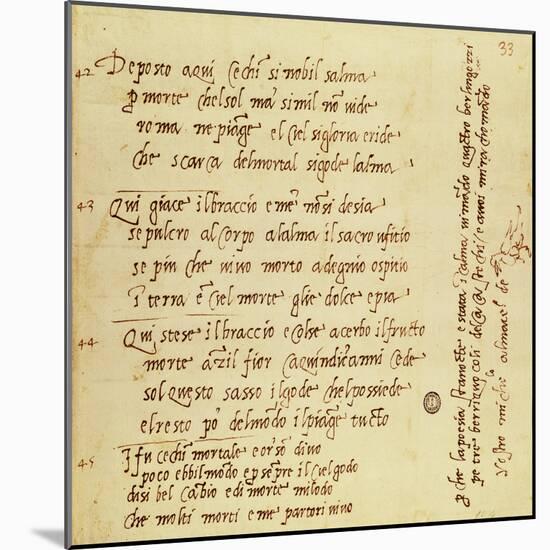 33
42 Deposto a qui cechī si nobil salma
p morte chel sol ma simil nō vide
roma ne piāge el ciel si gloria e ride
che scarca del mortal si gode lalma
43 Qui giace il braccio e me nō si desia
sepulcro al corpo a lalma il sacro ufitio
se piu che vivo morto a degnio ospitio
ī terra e ī ciel morte glie dolce e pia
44 Qui stese il braccio e colse acerbo il frutto
morte āzi il fior ca quindici anni cede
sol questo sasso il gode chel possiede
el resto po del mōdo il piāge tucto
45 I fu cechī mortale e or sō divo
poco ebbi il mōdo e p sēpre il ciel godo
di si bel cābio e di morte mi lodo
che molti morti e me partori vivo
p che la poesia stanocte e stata ī calma vi mādo quactro berlingozzi
pe tre berriquocoli del
vostro michelagniolo al